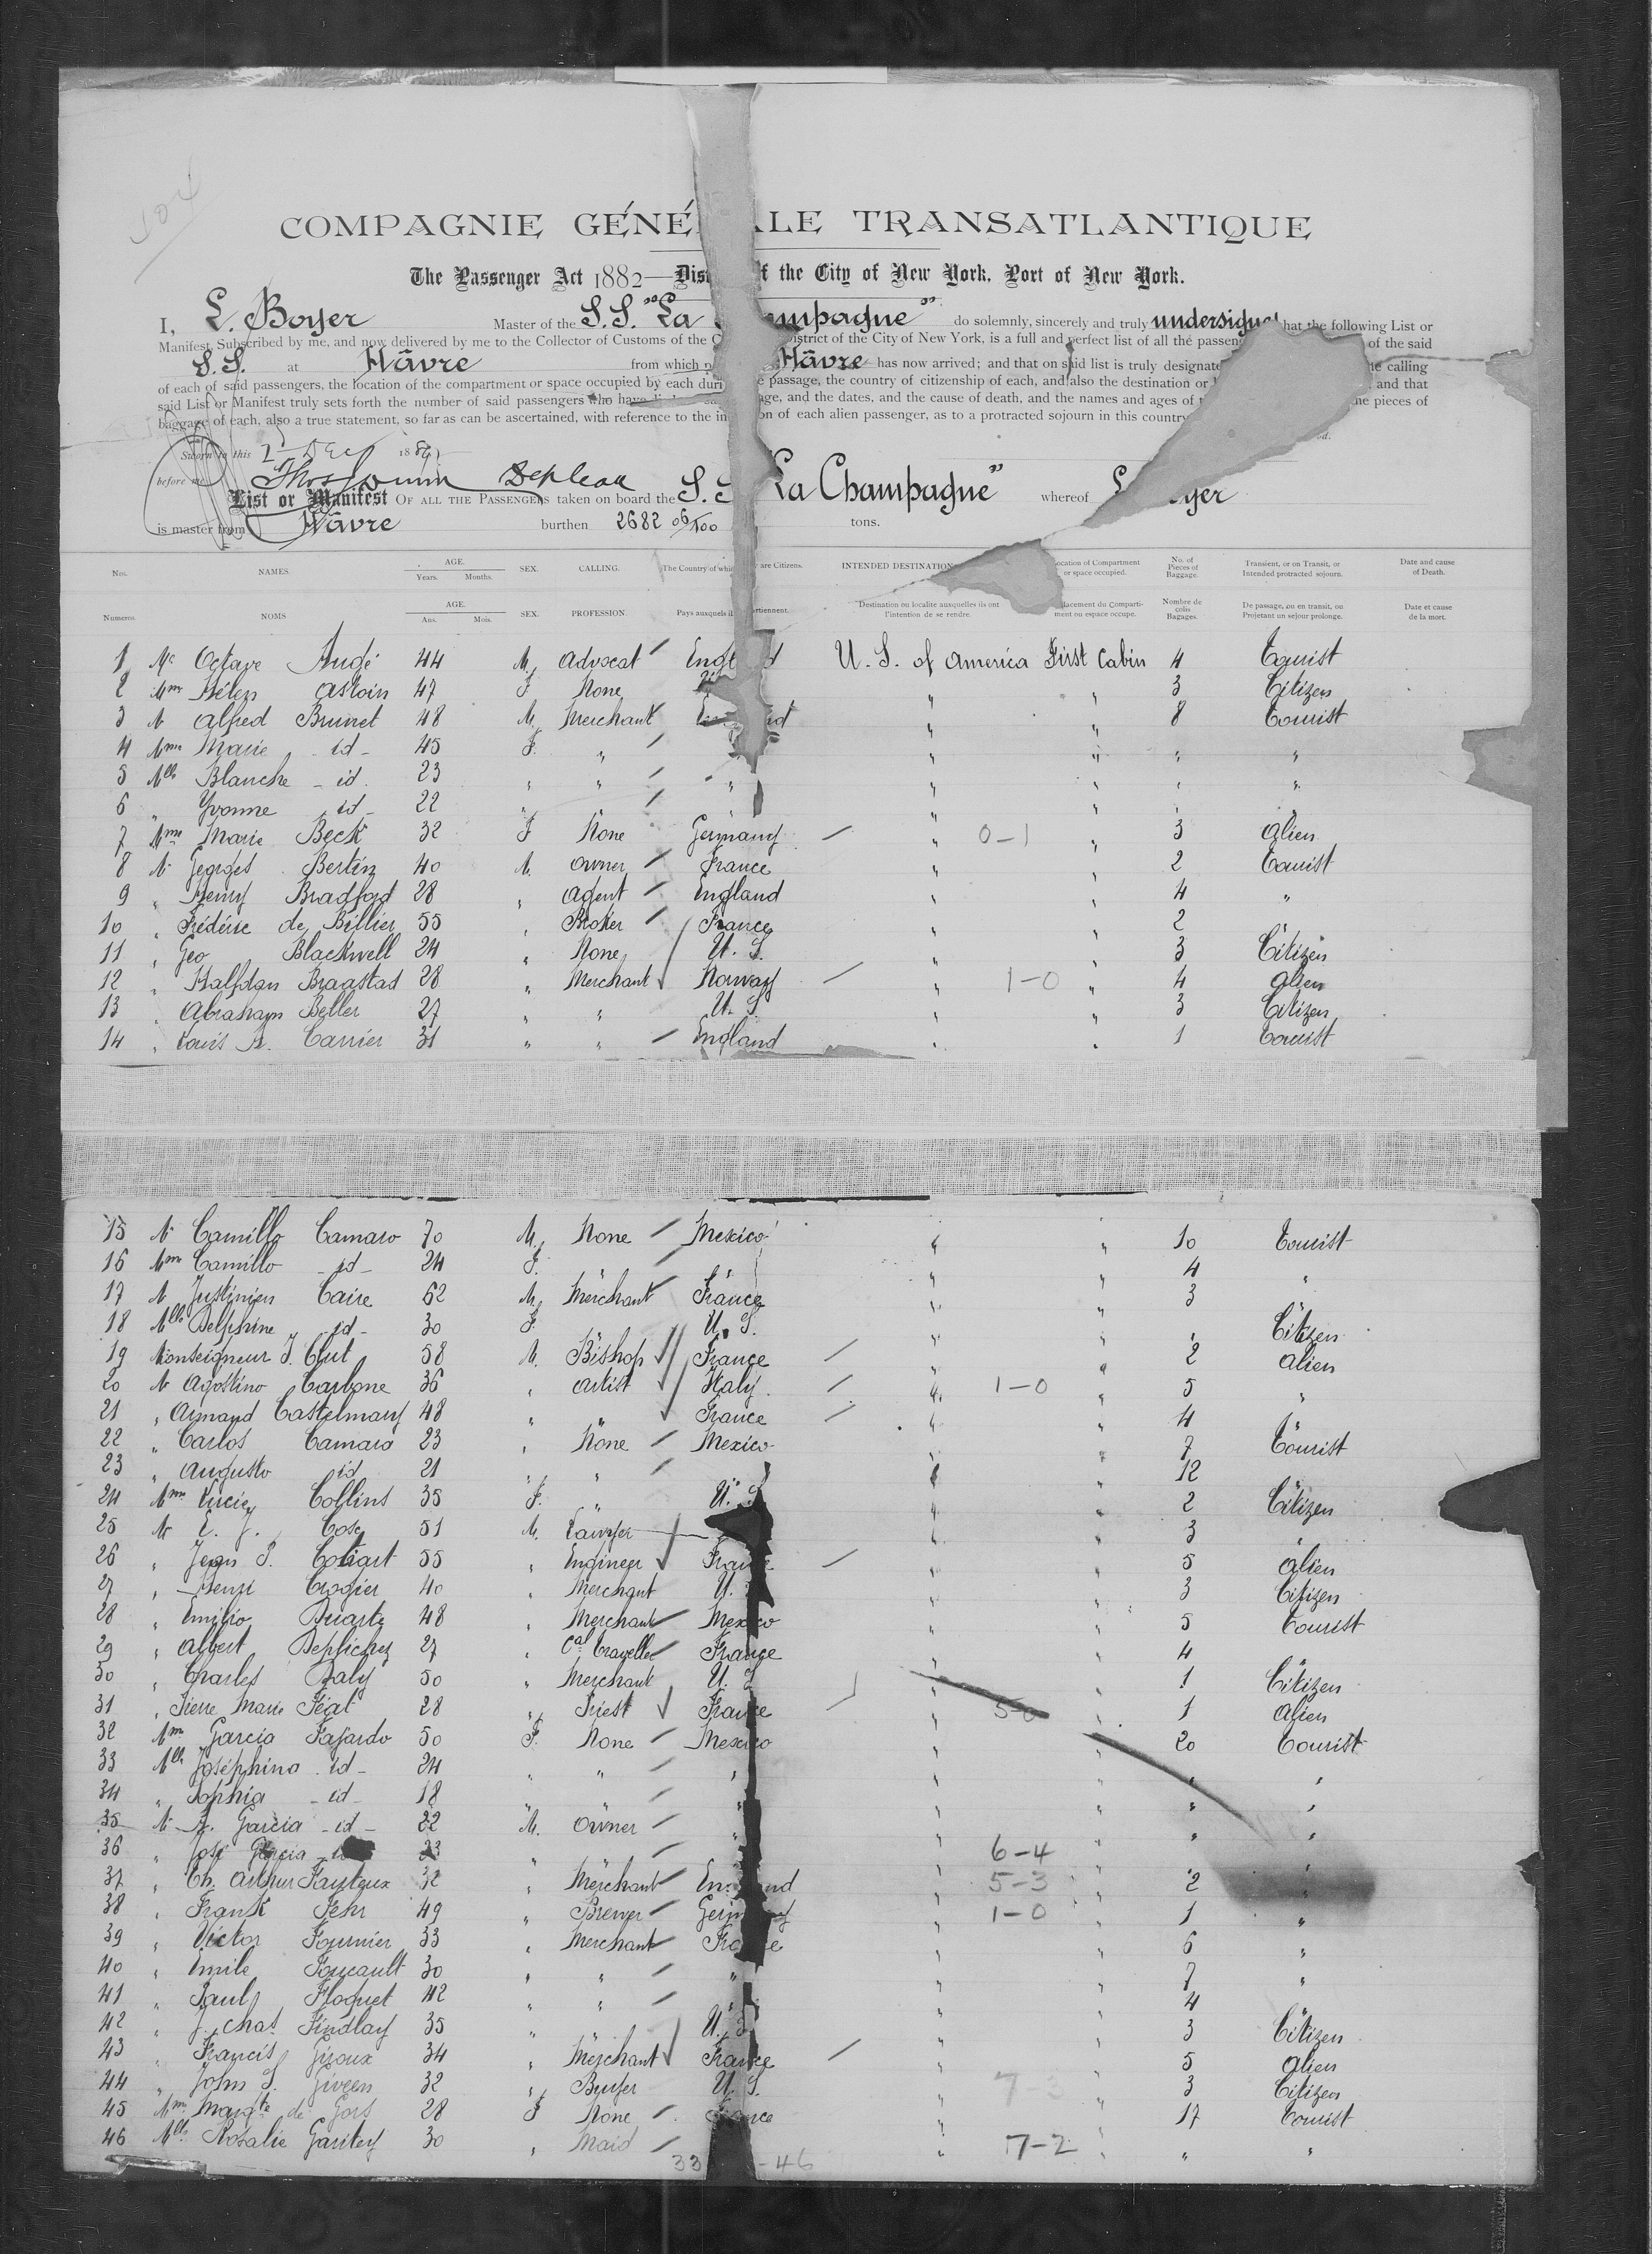 104
COMPAGNIE GÉNÉ LE TRANSATLANTIQUE
The Passenger Act 1882—Dis f the City of New York, Port of New York.
I, L. Boyer Master of the S.S. "La ampagne" do solemnly, sincerely and truly undersigned hat the following List or
Manifest, Subscribed by me, and now delivered by me to the Collector of Customs of the C istrict of the City of New York, is a full and perfect list of all the passen of the said
S.S. at Hâvre from which Hâvre has now arrived; and that on said list is truly designate calling
of each of said passengers, the location of the compartment or space occupied by each duri e passage, the country of citizenship of each, and also the destination or and that
said List or Manifest truly sets forth the number of said passengers who have age, and the dates, and the cause of death, and the names and ages of he pieces of
baggage of each, also a true statement, so far as can be ascertained, with reference to the in on of each alien passenger, as to a protracted sojourn in this country
Sworn to this 2 Dec 189
before me
List or Manifest OF ALL THE PASSENGERS taken on board the S. S La Champagne" whereof yer
is master from Hâvre burthen 2682 06/100 tons.
Nos. NAMES. AGE. Years. Months. SEX. CALLING. The Country of whi y are Citizens. INTENDED DESTINATION ocation of Compartment or space occupied. No. of Pieces of Baggage. Transient, or on Transit, or Intended protracted sojourn. Date and cause of Death.
Numeros. NOMS AGE. Ans. Mois. SEX. PROFESSION. Pays auxquels il rtiennent. Destination ou localite auxquelles ils ont l'intention de se rendre. lacement du Comparti- ment ou espace occupe. Nombre de colis Bagages. De passage, ou en transit, ou Projetant un sejour prolonge. Date et cause de la mort.
1 Mr Octave Augé 44 M. Advocat Engl d U. S. of America First Cabin 4 Tourist
2 Mme Helen Astoin 47 F. None " " 3 Citizen
3 M. Alfred Brunet 48 M. Merchant nd " " 8 Tourist
4 Mme Marie id 45 F. " " " " "
5 Mlle Blanche id 23 " " " " " " "
6 " Yvonne id 22 " " " "
7 Mme Marie Beck 32 F None Germany " 0-1 " 3 Alien
8 M. Georges Bertin 40 M. Owner France " " 2 Tourist
9 " Henry Bradford 28 " Agent England " " 4 "
10 " Frédéric de Billier 55 " Broker France " " 2
11 " Geo Blackwell 24 " None U. S. " " 3 Citizen
12 " Halfdan Braastad 28 " Merchant Norway " 1-0 " 4 Alien
13 " Abraham Beller 27 " " U. S " " 3 Citizen
14 " Louis A. Carrier 31 " " England " " 1 Tourist
15 M. Camillo Camaro 70 M. None Mexico " " 10 Tourist
16 Mme Camillo id 24 F. " " " " 4 "
17 M. Justinien Caire 62 M. Merchant France " " 3
18 Mlle Delphine id 30 F. " U. S. " " " Citizen
19 Monseigneur J. Clut 58 M. Bishop France " " 2 Alien
20 M. Agostino Carbone 36 " Artist Italy " 1-0 " 5 "
21 " Armand Castelmary 48 " " France " " 4 "
22 " Carlos Camara 23 " None Mexico " " 7 Tourist
23 " Augusto id 21 " " " " " 12 "
24 Mme Lucie Collins 35 F. " U. S " " 2 Citizen
25 M. E. J. Cose 51 M. Lawyer " " 3 "
26 " Jean P. 55 " Engineer France " " 5 Alien
27 " Henri Crogier 40 " Merchant U. " " 3 Citizen
28 " Emilio Duarte 48 " Merchant Mexico " " 5 Tourist
29 " Albert 27 " Cal Traveller France " " 4 "
30 " Charles Daly 50 " Merchant U. S " " 1 Citizen
31 " Pierre Marie Féat 28 " Priest France " " 1 Alien
32 Mme Garcia Fajardo 50 F. None Mexico " " 20 Tourist
33 Mlle Joséphina id 24 " " " " " " "
34 " Sophia id 18 " " " " " " "
35 M. A. Garcia id 22 M. Owner " " " " "
36 " José Garcia 23 " " " 6-4 " "
37 " Ch. Arthur Fauteux 32 " Merchant En nd " 5-3 " 2 "
38 " Frank Fehr 49 " Brewer Germ y " 1-0 " 1 "
39 " Victor Fournier 33 " Merchant Fra e " " 6 "
40 " Emile Foucault 30 " " " " " 7 "
41 " Paul Floquet 42 " " " " " 4 "
42 " J. Chas. Findlay 35 " " U. S " " 3 Citizen
43 " Francis Giroux 34 " Merchant France " " 5 Alien
44 " John S. Giveen 32 " Buyer U. S. " " 3 Citizen
45 Mme Margte de Gors 28 F None France " " 17 Tourist
46 Mlle Rosalie Garitey 30 " Maid " 7-2 " " "
33 -46